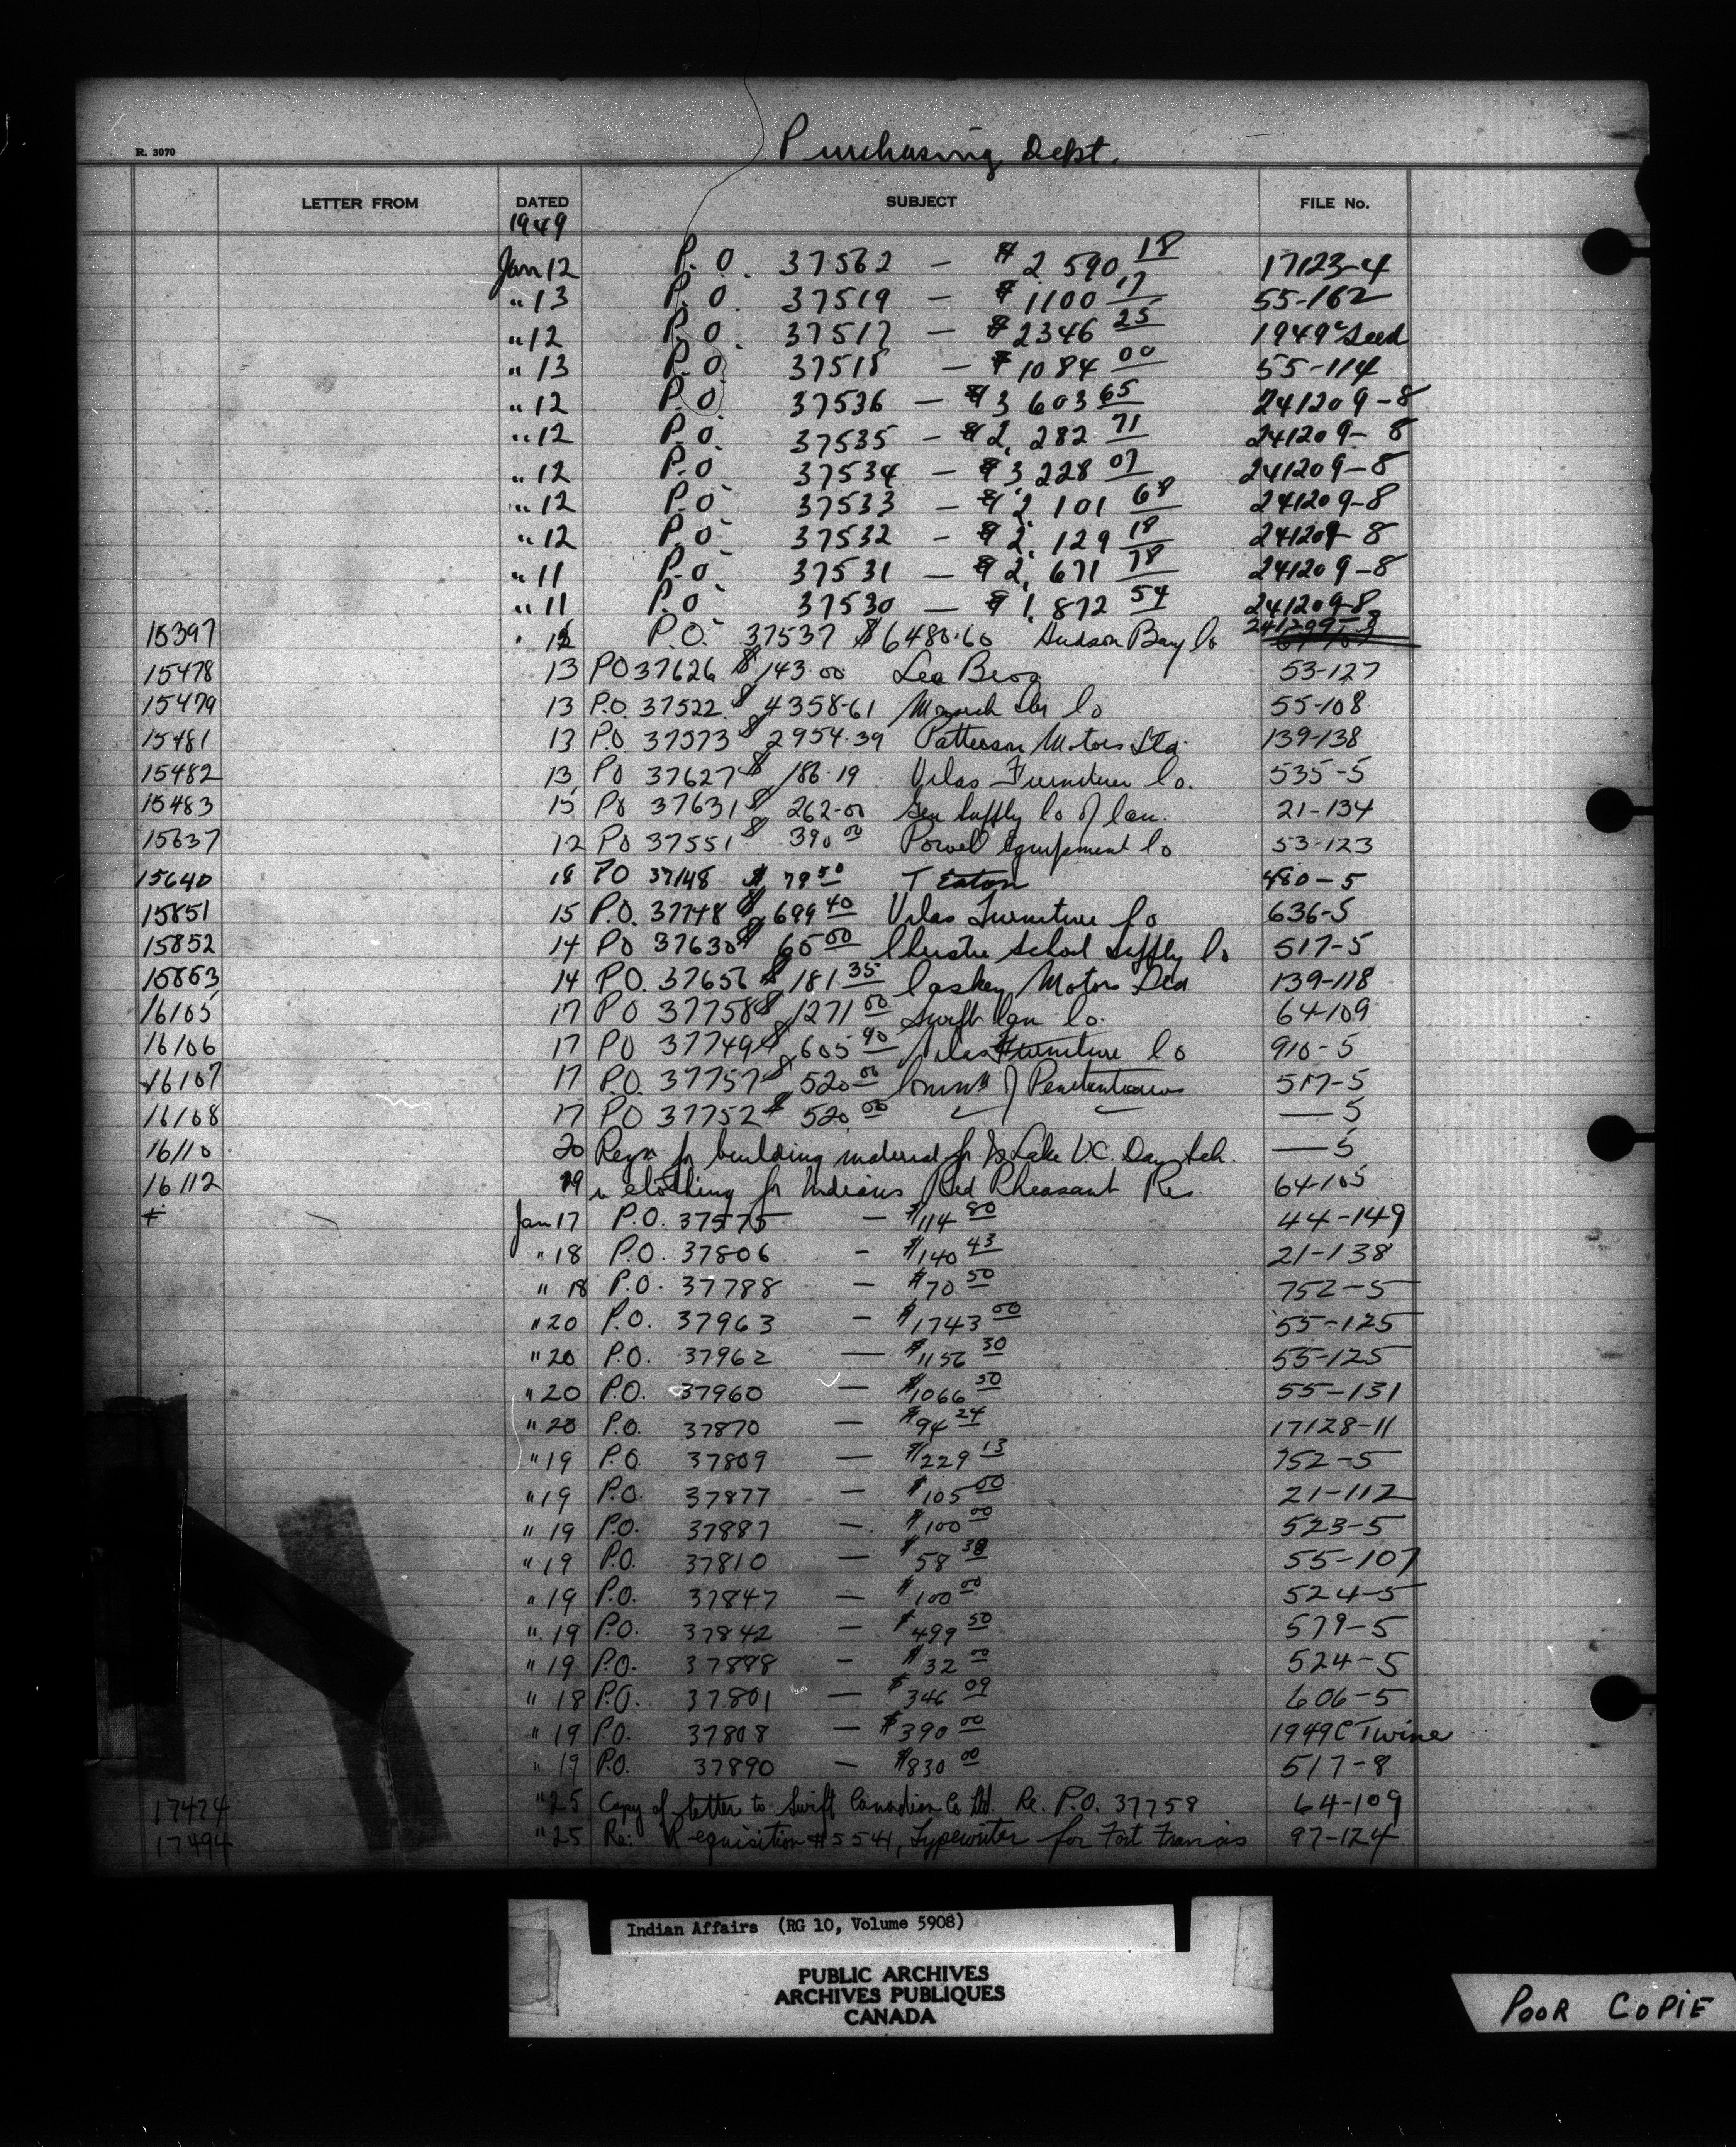 Purchasing Dept.
R. 3070
LETTER FROM DATED SUBJECT FILE No.
1949
Jan 12 P.O. 37562 — $2 590 18 17123-4
" 13 P.O. 37519 — $1100 17 55-162
" 12 P.O. 37517 — $2346 25 1949 C Seed
" 13 P.O. 37518 — $1084 00 55-114
" 12 P.O. 37536 — $3 603 65 241209-8
" 12 P.O. 37535 — $2,282 71 241209-8
" 12 P.O. 37534 — $3,228 07 241209-8
" 12 P.O. 37533 — $2,101 68 241209-8
" 12 P.O. 37532 — $2,129 18 241209-8
" 11 P.O. 37531 — $2,671 78 241209-8
" 11 P.O. 37530 — $1,872 54 241209-8
15397 P.O. 37537 $6480.60 Hudson Bay Co
15478 13 PO 37626 $143.00 53-127
15479 13 P.O. 37522 $4358-61 55-108
15481 13 P.O 37573 $2954.39 Patterson Motors Ltd. 139-138
15482 13 PO 37627 $186.19 Vilas Furniture Co. 535-5
15483 15 PO 37631 $262-00 Gen Supply Co of Can. 21-134
15637 12 PO 37551 $390 00 Powell Equipment Co 53-123
15640 18 PO 37148 $79 50 T Eaton 480-5
15851 15 P.O. 37748 $699 40 Vilas Furniture Co 636-5
15852 14 PO 37630 $65 00 School Supply Co 517-5
15853 14 P.O. 37656 $181.35 Caskey Motors Ltd 139-118
16105 17 PO 37758 $1271 00 Swift Can Co. 64-109
16106 17 PO 37749 $605 90 Vilas Furniture Co 910-5
16107 17 P.O. 37757 $520 00 Commr of Penitentiaries 517-5
16108 17 PO 37752 $520 00 — 5
16110 20 Reqn for building material for Lake Day Sch. — 5
16112 19 " clothing for Indians Red Pheasant Res. 64-105
Jan 17 P.O. 37575 — $114 80 44-149
" 18 P.O. 37806 — $140 43 21-138
" 18 P.O. 37788 — $70 50 752-5
" 20 P.O. 37963 — $1743 00 55-125
" 20 P.O. 37962 — $1156 30 55-125
" 20 P.O. 37960 — $1066 50 55-131
" 20 P.O. 37870 — $94 24 17128-11
" 19 P.O. 37809 — $229 13 752-5
" 19 P.O. 37877 — $105 00 21-112
" 19 P.O. 37887 — $100 00 523-5
" 19 P.O. 37810 — $58 38 55-107
" 19 P.O. 37847 — $100 00 524-5
" 19 P.O. 37842 — $499 50 579-5
" 19 P.O. 37898 — $32 00 524-5
" 18 P.O. 37801 — $346 09 606-5
" 19 P.O. 37808 — $390 00 1949 C Twine
" 19 P.O. 37890 — $830 00 517-8
17474 " 25 Copy of letter to Swift Canadian Co Ltd. Re. P.O. 37758 64-109
17494 " 25 Re: Requisition #5541, Typewriter for Fort Francis 97-124
Indian Affairs (RG 10, Volume 5908)
PUBLIC ARCHIVES
ARCHIVES PUBLIQUES
CANADA
POOR COPIE